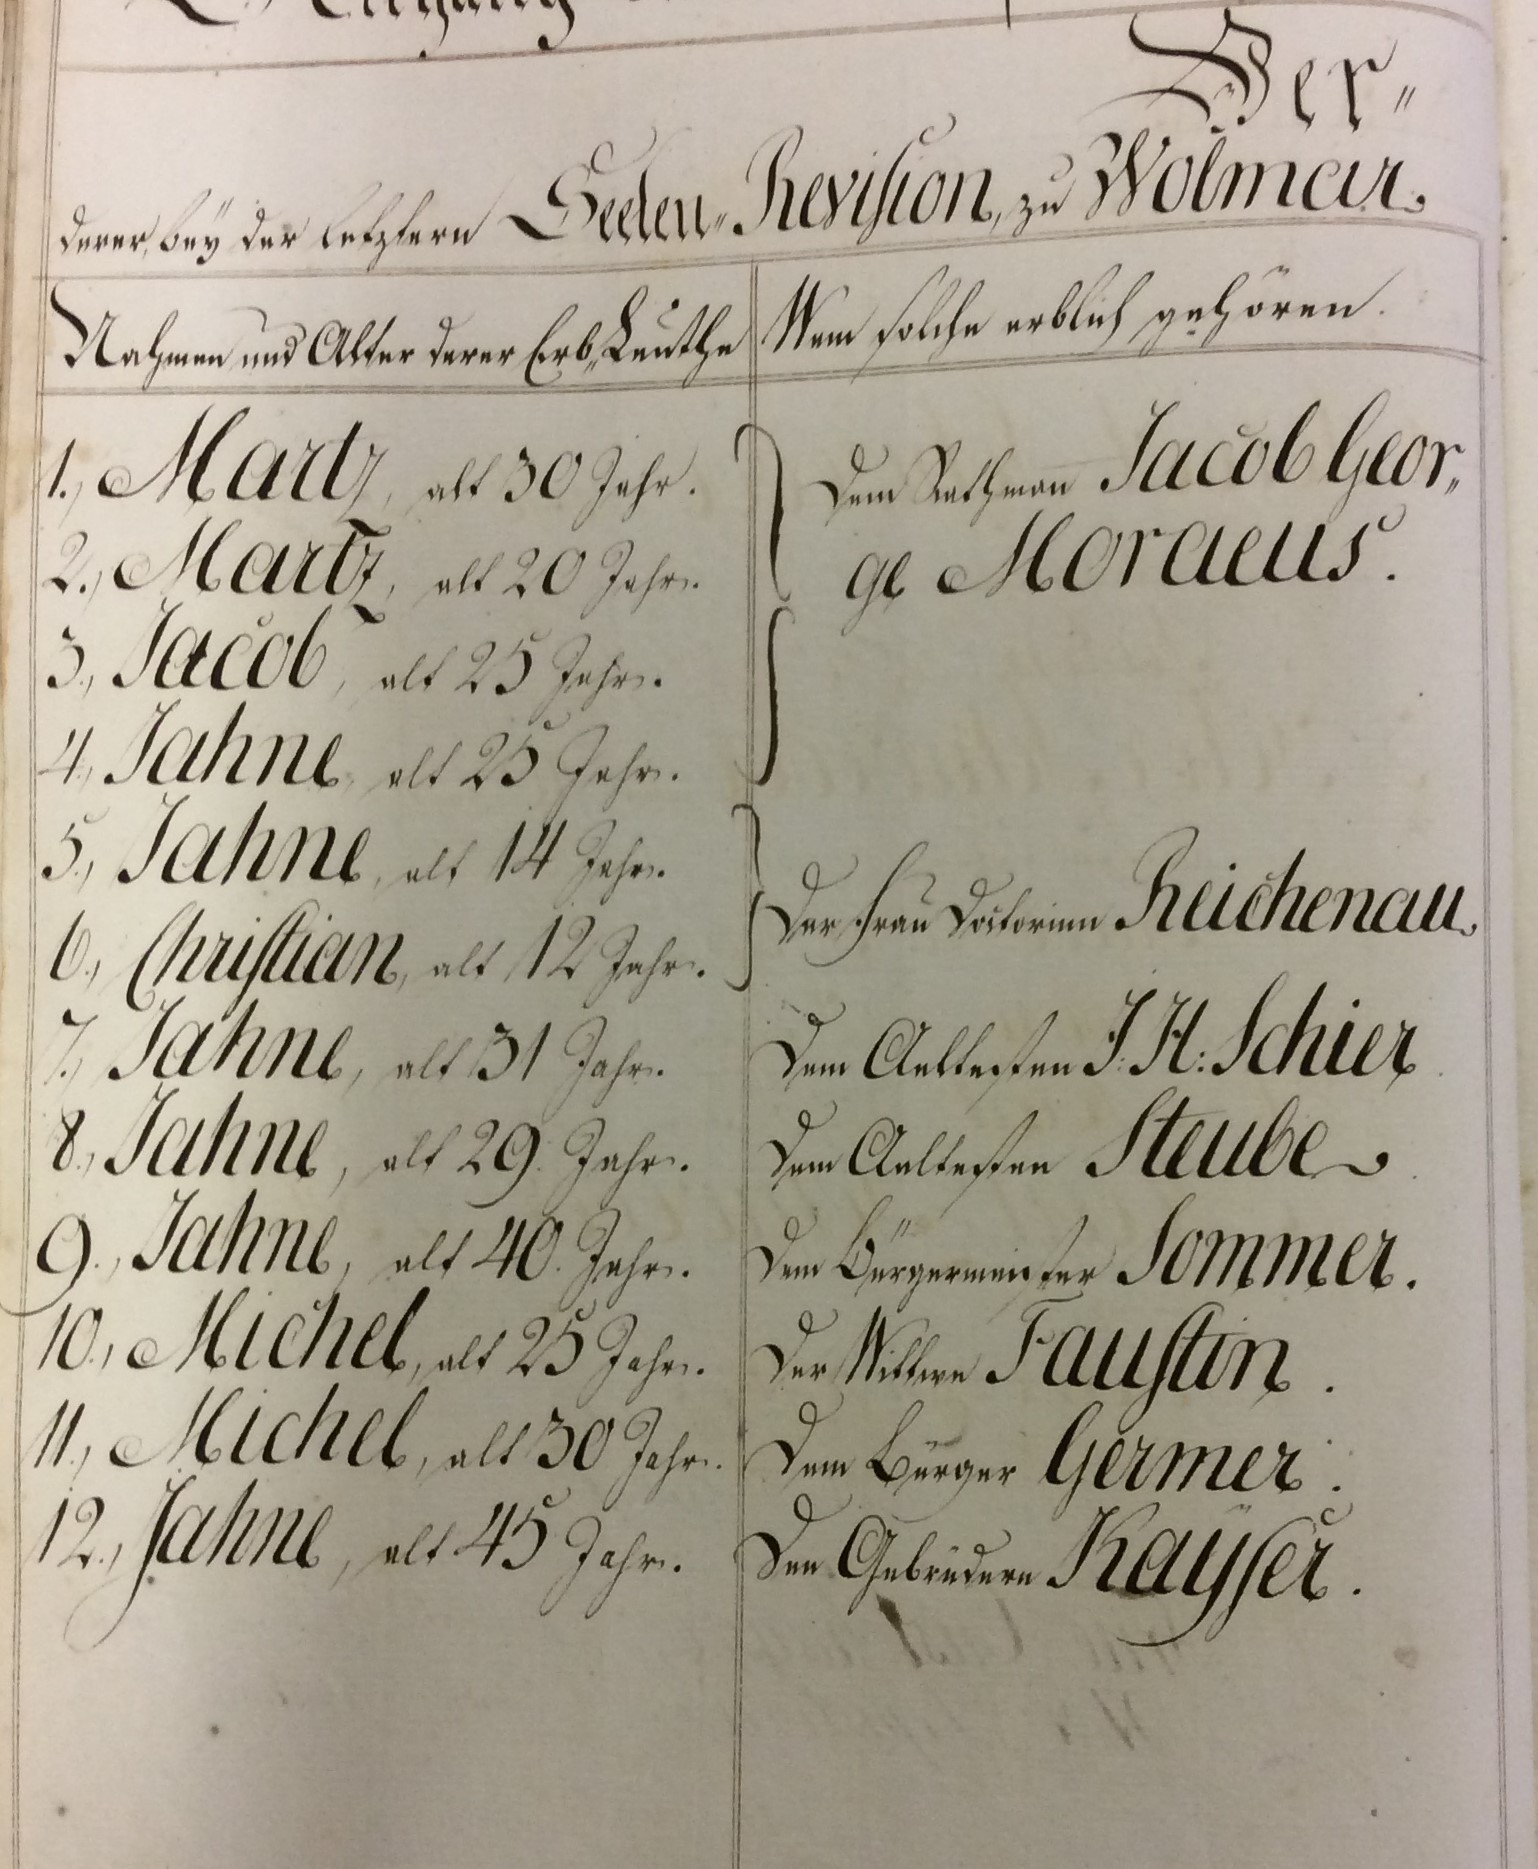 Ver„
derer, beÿ der letztern Seelen„Revision, zu Wolmar.
Nahmen und Alter derer Erb„Leuthe
Wem solche erblich gehören.
1., Martz, alt 30 Jahr.
2., Martz, alt 20 Jahr.
Dem Rathman̄ Jacob Geor„
ge Moraeus.
3., Jacob, alt 25 Jahr.
4., Jahne, alt 25 Jahr.
5., Jahne, alt 14 Jahr.
6., Christian, alt 12 Jahr.
Der Frau Doctorinn Reichenau.
7., Jahne, alt 31 Jahr.
Dem Aeltesten J: H: Schier
8., Jahne, alt 29. Jahr.
Dem Aeltesten Steube
9., Jahne, alt 40. Jahr.
Dem Bürgermeister Sommer.
10., Michel, alt 25 Jahr.
Der Wittwe Faustin.
11., Michel, alt 30 Jahr.
Dem Bürger Germer.
12., Jahne, alt 45 Jahr.
Den Gebrüdern Kayser.